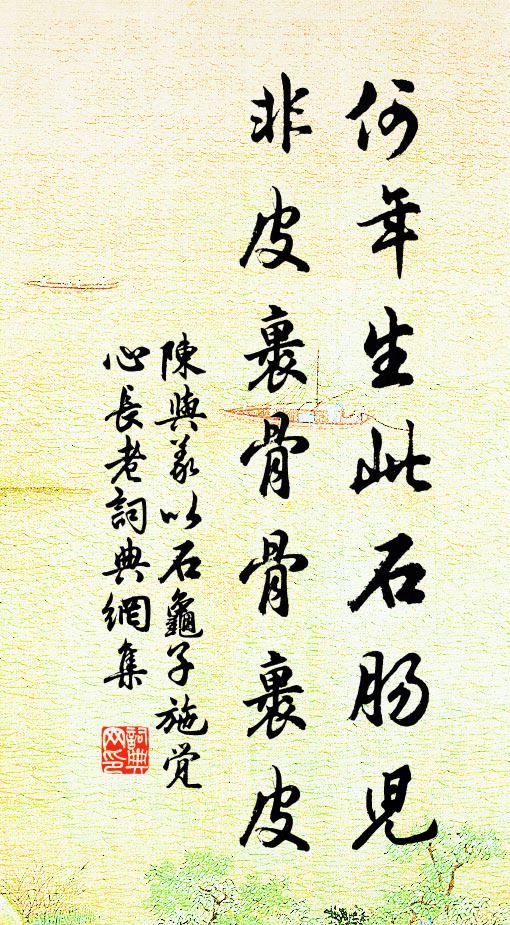 何年生此石肠児
非皮裹骨骨裹皮
陳與义以石龜子施觉
心長老詞典網集
詞典网印